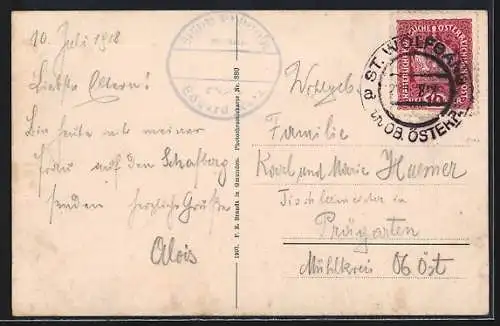 10. Juli 1918
Liebste Eltern!
Bin heute mit meiner
Frau auf den Schafberg
senden herzliche Grüße
Alois
1907. F. E. Brandt in Gmunden. Photochromiekarte Nr. 880
ST. WOLFGANG
in OB. ÖSTERR.
Wohlgeb.
Familie
Karl und Marie Huemer
Tischlermeister in
Prägarten
Mühlkreis Ob Öst